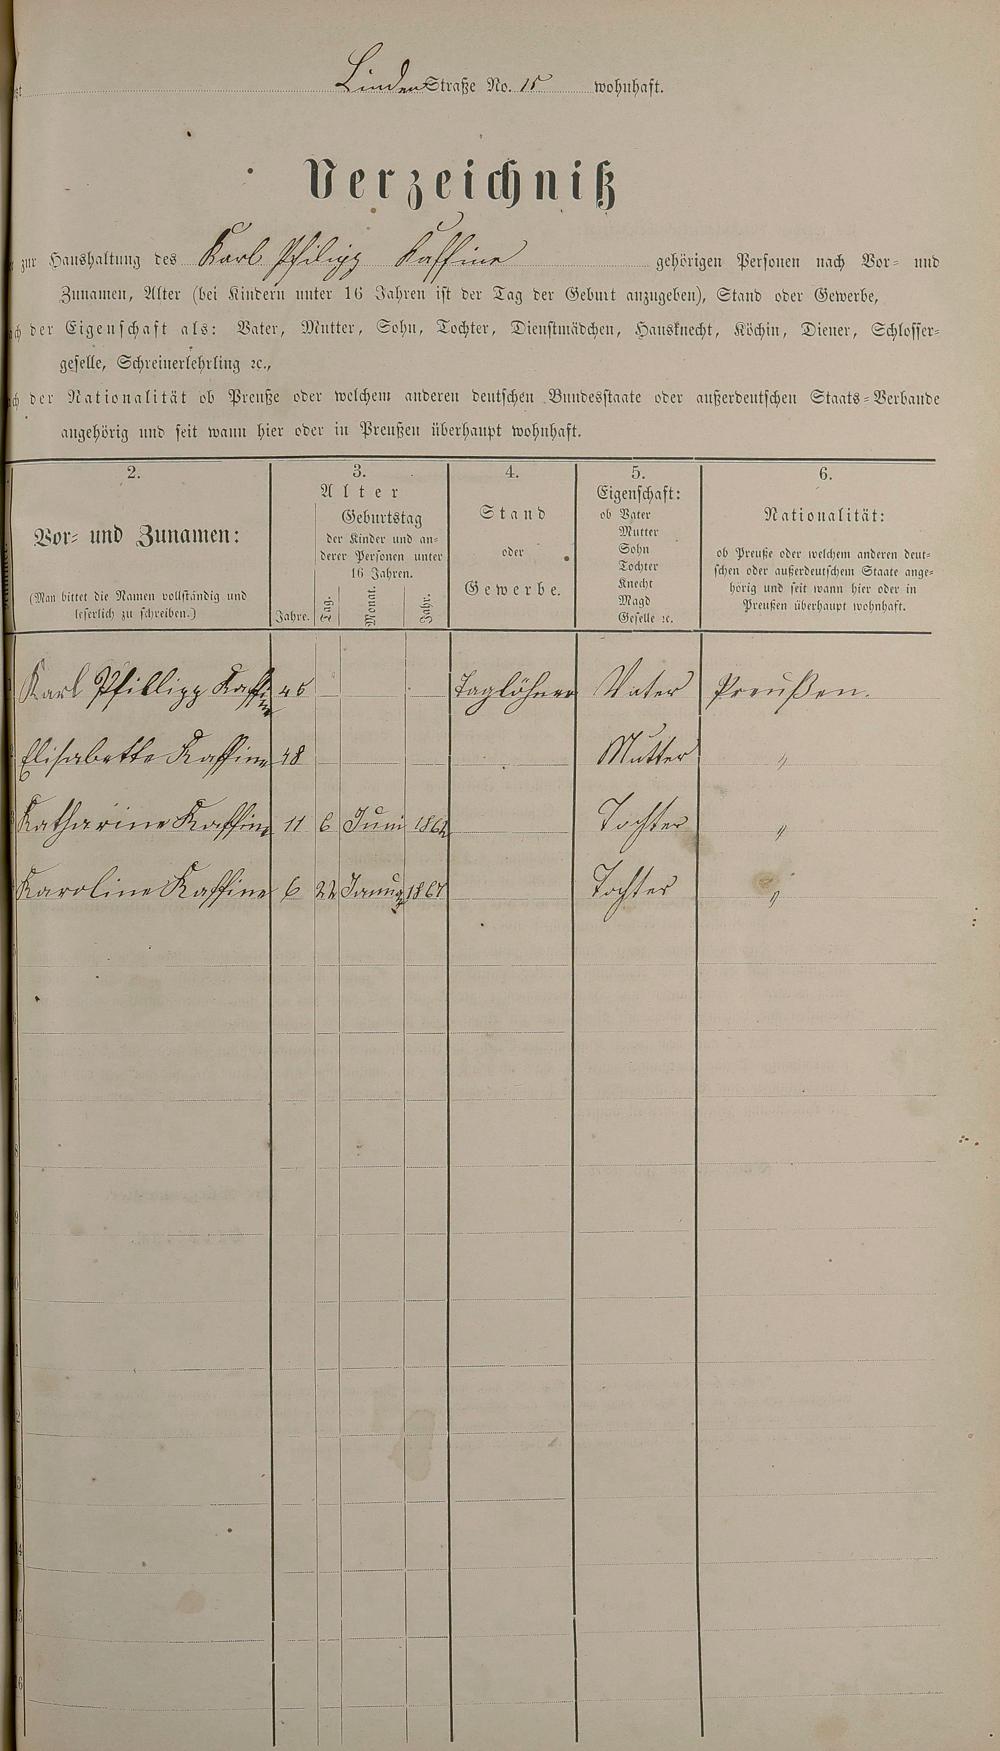 Linden Straße No. 15 wohnhaft.
Verzeichniß
zur Haushaltung des Karl Philipp Kaffine gehörigen Personen nach Vor- und
Zunamen, Alter (bei Kindern unter 16 Jahren ist der Tag der Geburt anzugeben), Stand oder Gewerbe,
der Eigenschaft als: Vater, Mutter, Sohn, Tochter, Dienstmädchen, Hausknecht, Köchin, Diener, Schlosser-
geselle, Schreinerlehrling ꝛc.,
der Nationalität ob Preuße oder welchem anderen deutschen Bundesstaate oder außerdeutschen Staats-Verbande
angehörig und seit wann hier oder in Preußen überhaupt wohnhaft.
2.
Vor- und Zunamen:
(Man bittet die Namen vollständig und
leserlich zu schreiben.)
3.
Alter
Geburtstag
der Kinder und an-
derer Personen unter
16 Jahren.
Jahre. Tag. Monat. Jahr.
4.
Stand
oder
Gewerbe.
5.
Eigenschaft:
ob Vater
Mutter
Sohn
Tochter
Knecht
Magd
Geselle ꝛc.
6.
Nationalität:
ob Preuße oder welchem anderen deut-
schen oder außerdeutschem Staate ange-
hörig und seit wann hier oder in
Preußen überhaupt wohnhaft.
Karl Phillipp Kaffine 45 Taglöhner Vater Preußen.
Elisabetha Kaffine 48 Mutter "
Katharine Kaffine 11 6 Juni 1862 Tochter "
Karoline Kaffine 6 22 Januar 1867 Tochter "